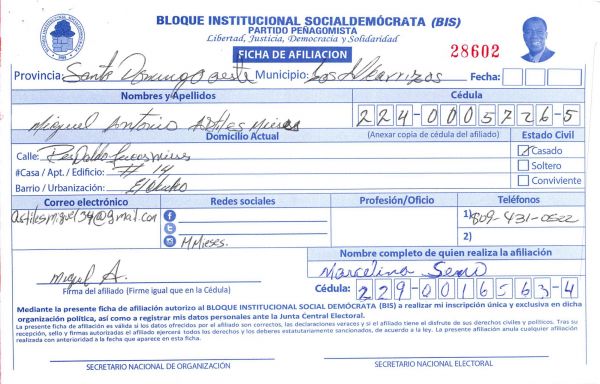 BLOQUE INSTITUCIONAL SOCIALDEMÓCRATA (BIS)
PARTIDO PEÑAGOMISTA
Libertad, Justicia, Democracia y Solidaridad
FICHA DE AFILIACION 28602
Provincia: Santo Domingo oeste Municipio: Los Alcarrizos Fecha:
Nombres y Apellidos Cédula
Miguel Antonio Astiles Mieses 224-0005726-5
Domicilio Actual (Anexar copia de cédula del afiliado) Estado Civil
Calle: Casado
#Casa / Apt. / Edificio: # 14 Soltero
Barrio / Urbanización: Conviviente
Correo electrónico Redes sociales Profesión/Oficio Teléfonos
astilesmiguel34@gmail.com 1) 809-431-0522
MMieses. 2)
Nombre completo de quien realiza la afiliación
Miguel A. Marcelina
Firma del afiliado (Firme igual que en la Cédula) Cédula: 229-0016563-4
Mediante la presente ficha de afiliación autorizo al BLOQUE INSTITUCIONAL SOCIAL DEMÓCRATA (BIS) a realizar mi inscripción única y exclusiva en dicha
organización política, así como a registrar mis datos personales ante la Junta Central Electoral.
La presente ficha de afiliación es válida si los datos ofrecidos por el afiliado son correctos, las declaraciones veraces y si el afiliado tiene el disfrute de sus derechos civiles y políticos. Tras su
recepción, sello y firmas autorizadas el afiliado ejercerá todos los derechos y los deberes estatutariamente sancionados, de acuerdo a la ley. La presente afiliación anula cualquier afiliación
realizada con anterioridad a la fecha que aparece en esta ficha.
SECRETARIO NACIONAL DE ORGANIZACIÓN SECRETARIO NACIONAL ELECTORAL